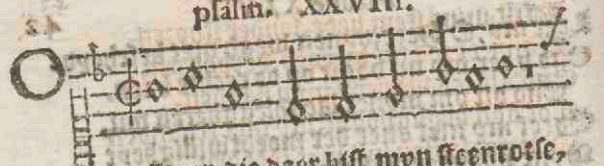 psalm. XXVIII.
O
die daer bist myn steenrotse,